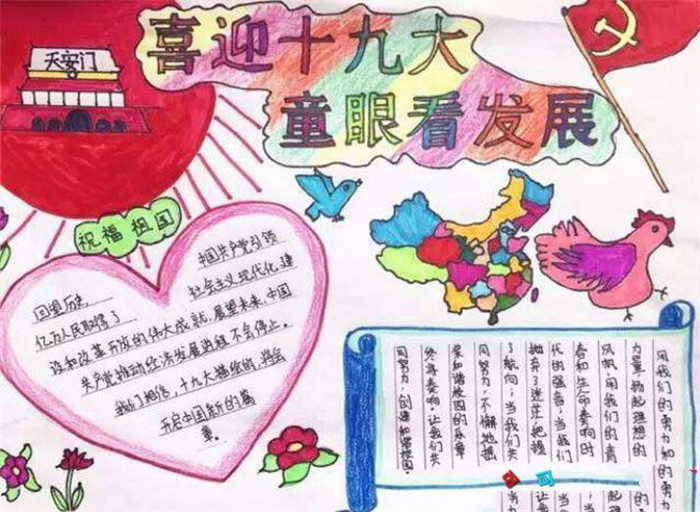 天安门
喜迎十九大
童眼看发展
祝福祖国
中国共产党引领
回望历史,
社会主义现代化建
亿万人民取得了
设和改革开放的伟大成就,展望未来,中国
共产党推动经济发展进程不会停止。
我们相信,十九大描绘的,将会
开启中国新的篇
章。
用我们的努力和的努力
力量,扬起理想的
风帆,用我们的青
春和生命奏响时
代的强音;当我们
抛弃了迷茫,把握
了航向;当我们共
同努力,不懈地
和谐校园的乐章
终将奏响。让我们共
同努力,创建和谐校园。